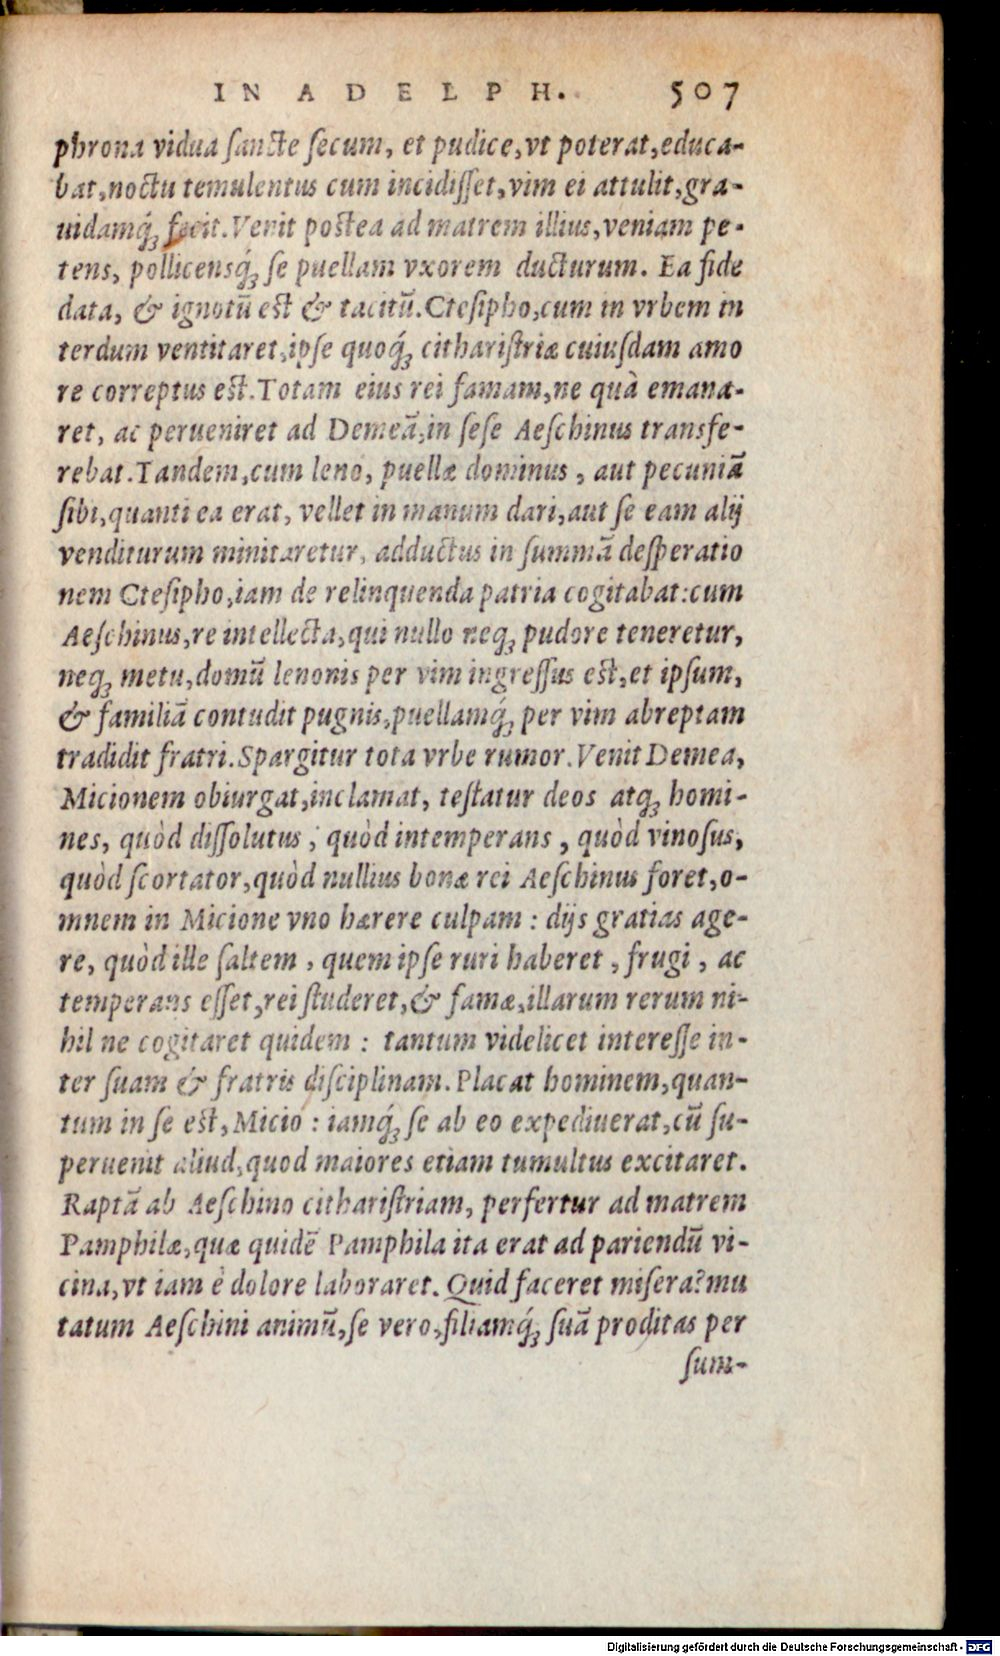 IN ADELPH. 507
phrona vidua ſancte ſecum, et pudice, vt poterat, educa-
bat, noctu temulentus cum incidiſſet, vim ei attulit, gra-
uidamq́ꝫ fecit. Venit poſtea ad matrem illius, veniam pe-
tens, pollicensq́ꝫ ſe puellam vxorem ducturum. Ea fide
data, & ignotū eſt & tacitū. Cteſipho, cum in vrbem in
terdum ventitaret, ipſe quoq́ꝫ cithariſtriæ cuiuſdam amo
re correptus eſt. Totam eius rei famam, ne quà emana-
ret, ac perueniret ad Demeā, in ſeſe Aeſchinus transfe-
rebat. Tandem, cum leno, puellæ dominus, aut pecuniā
ſibi, quanti ea erat, vellet in manum dari, aut ſe eam alij
venditurum minitaretur, adductus in ſummā deſperatio
nem Cteſipho, iam de relinquenda patria cogitabat: cum
Aeſchinus, re intellecta, qui nullo neqꝫ pudore teneretur,
neqꝫ metu, domū lenonis per vim ingreſſus eſt, et ipſum,
& familiā contudit pugnis, puellamq́ꝫ per vim abreptam
tradidit fratri. Spargitur tota vrbe rumor. Venit Demea,
Micionem obiurgat, inclamat, teſtatur deos atqꝫ homi-
nes, quòd diſſolutus, quòd intemperans, quòd vinoſus,
quòd ſcortator, quòd nullius bonæ rei Aeſchinus foret, o-
mnem in Micione vno hærere culpam: dijs gratias age-
re, quòd ille ſaltem, quem ipſe ruri haberet, frugi, ac
temperans eſſet, rei ſtuderet, & famæ, illarum rerum ni-
hil ne cogitaret quidem: tantum videlicet intereſſe in-
ter ſuam & fratris diſciplinam. Placat hominem, quan-
tum in ſe eſt, Micio: iamq́ꝫ ſe ab eo expediuerat, cū ſu-
peruenit aliud, quod maiores etiam tumultus excitaret.
Raptā ab Aeſchino cithariſtriam, perfertur ad matrem
Pamphilæ, quæ quidē Pamphila ita erat ad pariendū vi-
cina, vt iam è dolore laboraret. Quid faceret miſera? mu
tatum Aeſchini animū, ſe vero, filiamq́ꝫ ſuā proditas per
ſum-
Digitalisierung gefördert durch die Deutsche Forschungsgemeinschaft - DFG